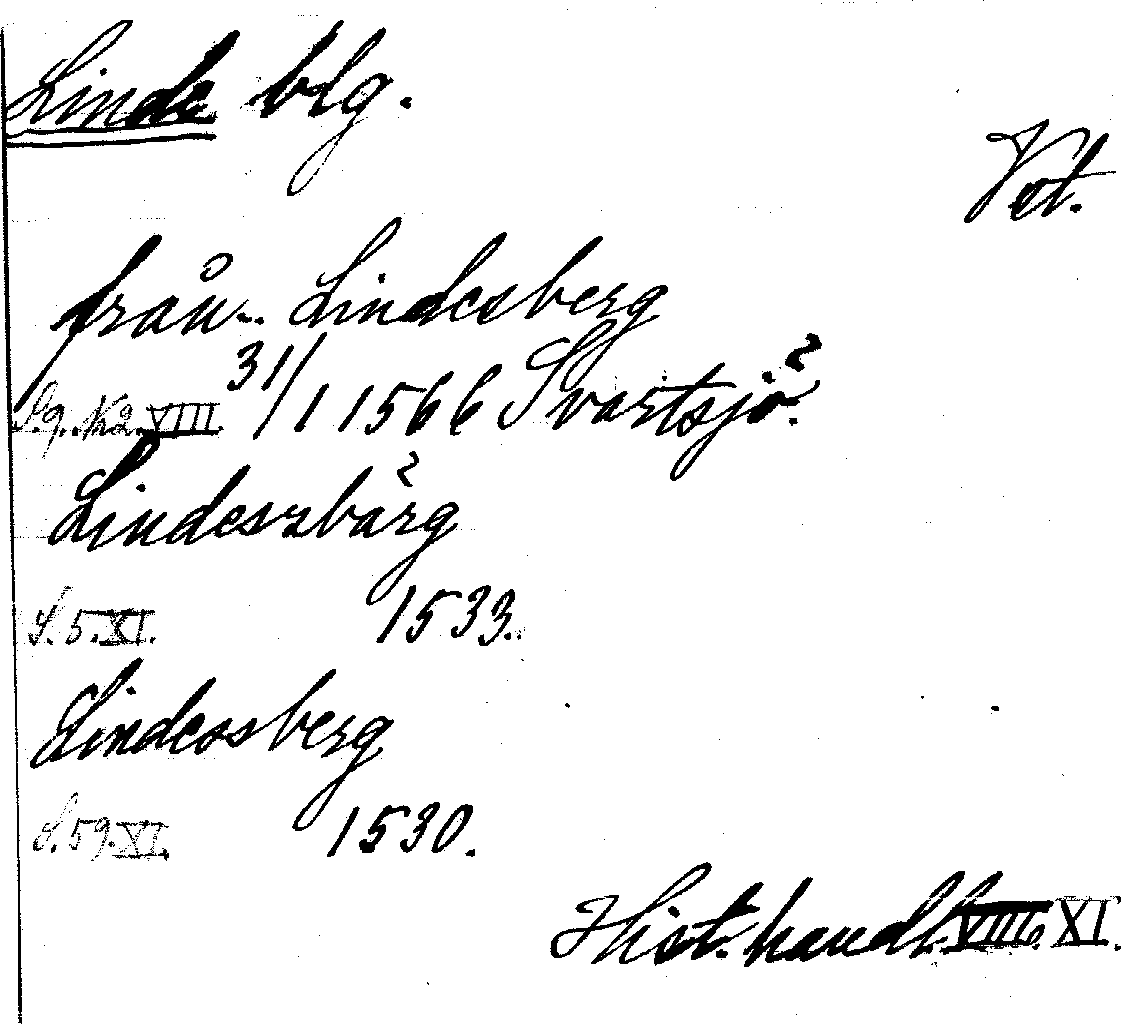 Linde blg.
Vst.
från Lindesberg
S. 9. K2. VIII. 31/1 1566 Svartsjö.
Lindeszbärg
S. 5. XI. 1533.
Lindessberg
S. 59. XI. 1530.
Hist. handl. VIII. XI.